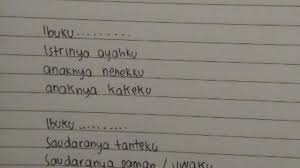 Ibuku..........
Istrinya ayahku
anaknya nenekku
anaknya kakeku
Ibuku..........
Saudaranya tanteku
Saudaranya paman / uwaku